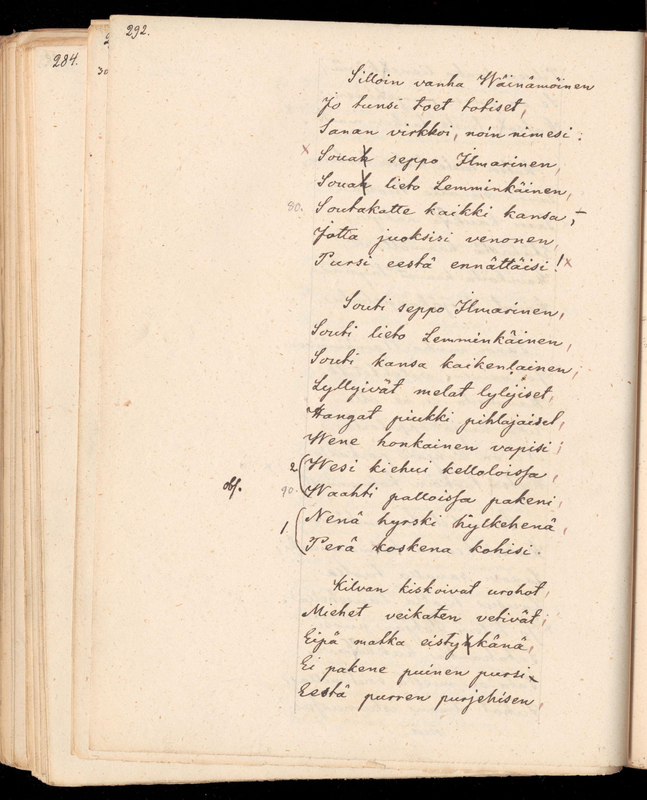 292.
284.
Silloin vanha Wäinämöinen
Jo tunsi toet totiset,
Sanan virkkoi, noin nimesi:
Souah seppo Ilmarinen,
Souah lieto Lemminkäinen,
80. Soutakatte kaikki kansa,
Jotta juoksisi venonen,
Pursi eestä ennättäisi!
Souti seppo Ilmarinen,
Souti lieto Lemminkäinen,
Souti kansa kaikenlainen,
Lyllyivät melat lylyiset,
Hangat piukki pihlajaiset,
Wene honkainen vapisi;
2 Wesi kiehui kelloloissa,
obs. 90. Waahti palloissa pakeni,
1 Nenä hyrski hylkehenä,
Perä koskena kohisi.
Kilvan kiskoivat urohot,
Miehet veikaten vetivät;
Eipä matka eistynkänä,
Ei pakene puinen pursi
Eestä purren purjehisen,